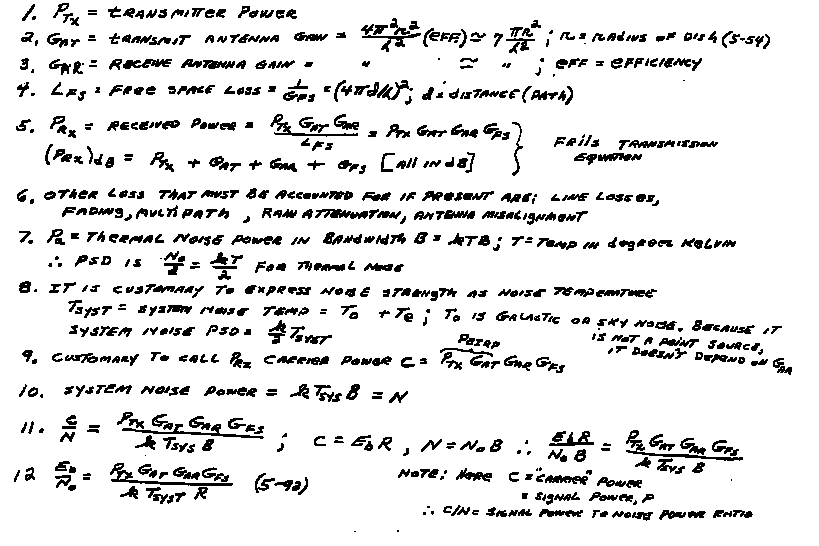 1. P_Tx = TRANSMITTER POWER
2. G_AT = TRANSMIT ANTENNA GAIN = 4π²r²/λ² (EFF) ≃ 7 πR²/λ² ; r = RADIUS OF DISH (5-54)
3. G_AR = RECEIVE ANTENNA GAIN = " ≃ " ; EFF = EFFICIENCY
4. L_FS = FREE SPACE LOSS = 1/G_FS = (4πd/λ)² ; d = DISTANCE (PATH)
5. P_Rx = RECEIVED POWER = P_Tx G_AT G_AR / L_FS = P_Tx G_AT G_AR G_FS
(P_RX)dB = P_Tx + G_AT + G_AR + G_FS [All IN dB]
FRIIS TRANSMISSION
EQUATION
6. OTHER LOSS THAT MUST BE ACCOUNTED FOR IF PRESENT ARE; LINE LOSSES,
FADING, MULTIPATH, RAIN ATTENUATION, ANTENNA MISALIGNMENT
7. P_a = THERMAL NOISE POWER IN BANDWIDTH B = kTB ; T = TEMP IN degrees KELVIN
∴ PSD IS N_o/2 = kT/2 FOR THERMAL NOISE
8. IT IS CUSTOMARY TO EXPRESS NOISE STRENGTH AS NOISE TEMPERATURE
T_SYST = SYSTEM NOISE TEMP = T_o + T_e ; T_o IS GALACTIC OR SKY NOISE. BECAUSE IT
IS NOT A POINT SOURCE,
IT DOESN'T DEPEND ON G_AR
SYSTEM NOISE PSD = k/2 T_SYST
P_EIRP
9. CUSTOMARY TO CALL P_Rx CARRIER POWER C = P_Tx G_AT G_AR G_FS
10. SYSTEM NOISE POWER = k T_SYS B = N
11. C/N = P_TX G_AT G_AR G_FS / k T_SYS B ; C = E_b R , N = N_o B ∴ E_b R / N_o B = P_Tx G_AT G_AR G_FS / k T_SYS B
12 E_b/N_o = P_Tx G_AT G_AR G_FS / k T_SYST R (5-92)
NOTE; HERE C = "CARRIER" POWER
= SIGNAL POWER, P
∴ C/N = SIGNAL POWER TO NOISE POWER RATIO